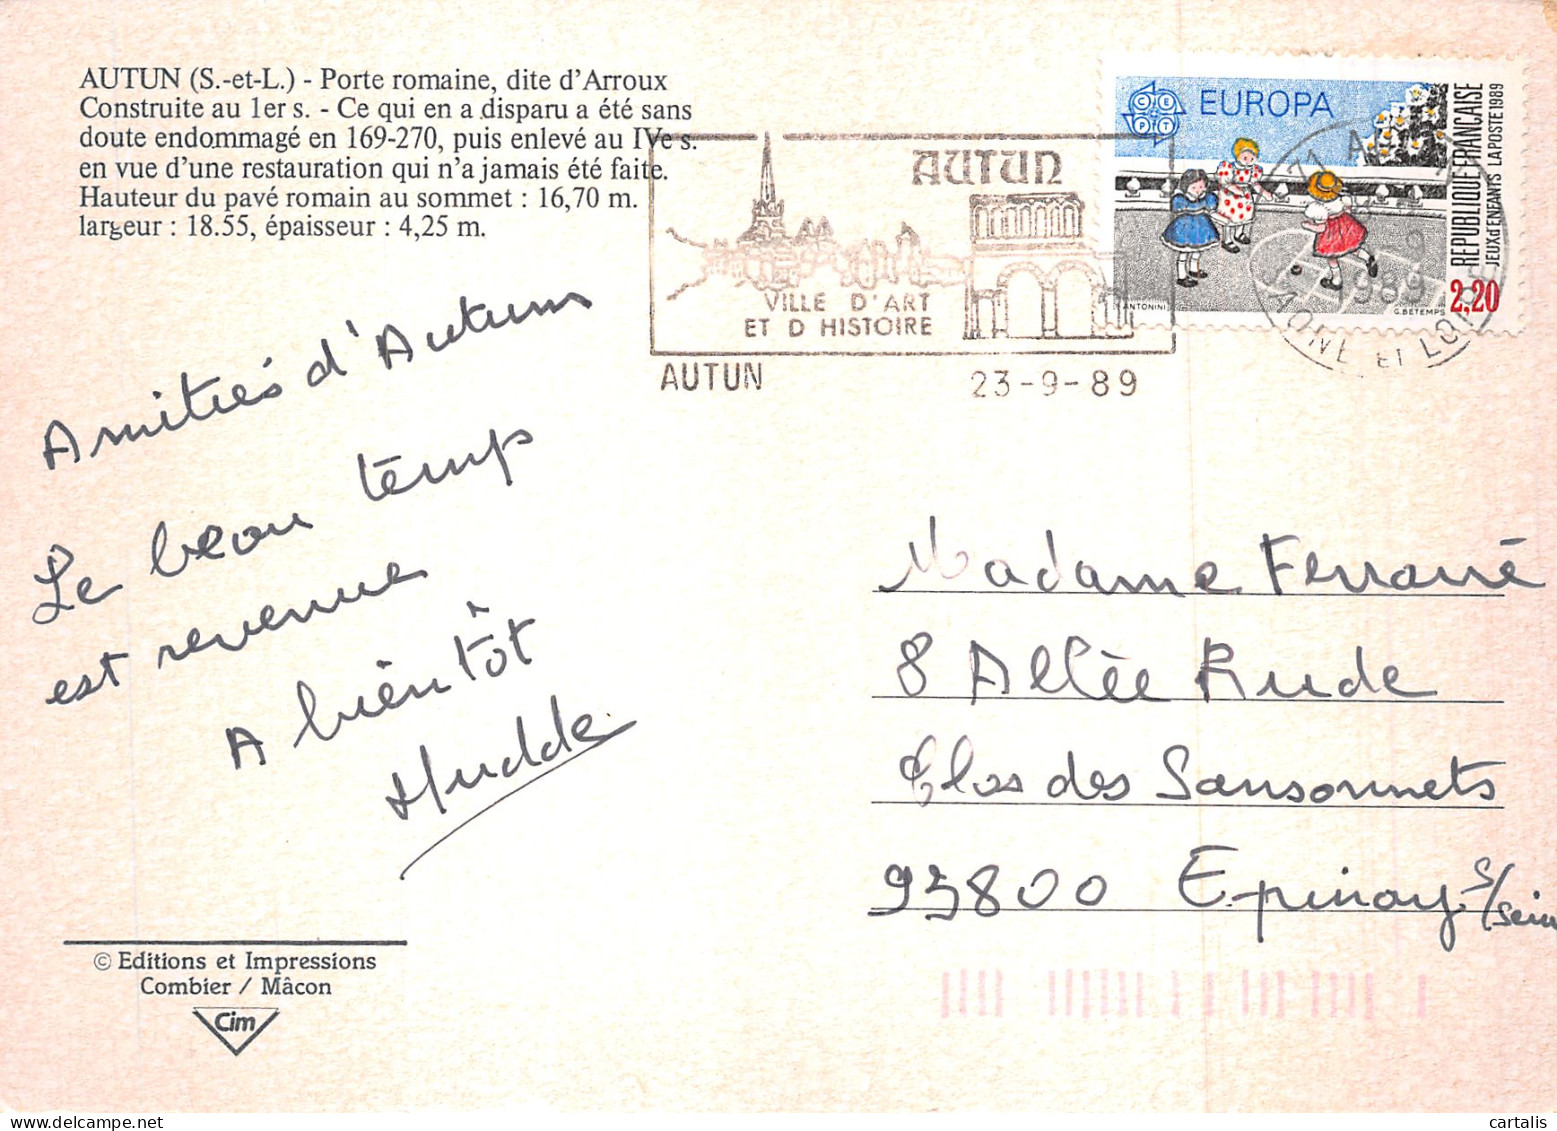 AUTUN (S.-et-L.) - Porte romaine, dite d'Arroux
Construite au 1er s. - Ce qui en a disparu a été sans
doute endommagé en 169-270, puis enlevé au IVe s.
en vue d'une restauration qui n'a jamais été faite.
Hauteur du pavé romain au sommet : 16,70 m.
largeur : 18.55, épaisseur : 4,25 m.
AUTUN
VILLE D'ART
ET D HISTOIRE
AUTUN
23-9-89
CEPT EUROPA
REPUBLIQUE FRANÇAISE
JEUX d'ENFANTS LA POSTE 1989
2,20
ANTONINI
G.BETEMPS
71 A
1989
AONE ET LOI
Amitiés d'Autun
Le beau temps
est revenue
A bientôt
Hudde
Madame Ferrarré
8 Allée Rude
Clos des Sansonnets
93800 Epinay s/sein
© Editions et Impressions
Combier / Mâcon
Cim
cartalis